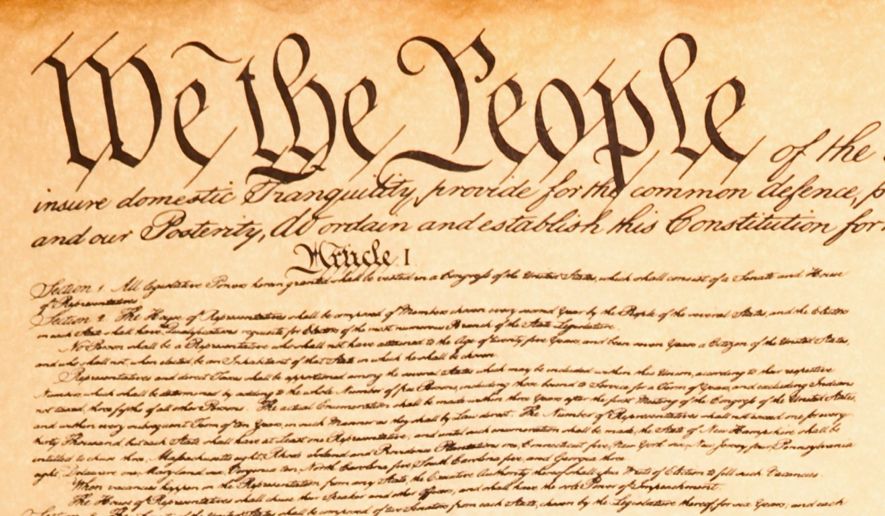 We the People of the
insure domestic Tranquility, provide for the common defence, p
and our Posterity, do ordain and establish this Constitution for
Article I
Section 1 All legislative Powers herein granted shall be vested in a Congress of the United States, which shall consist of a Senate and House
of Representatives
Section 2 The House of Representatives shall be composed of Members chosen every second Year by the People of the several States, and the Electors
in each State shall have Qualifications requisite for Electors of the most numerous Branch of the State Legislature
No Person shall be a Representative who shall not have attained to the Age of twenty five Years, and been seven Years a Citizen of the United States,
and who shall not, when elected, be an Inhabitant of that State in which he shall be chosen
Representatives and direct Taxes shall be apportioned among the several States which may be included within this Union, according to their respective
Numbers, which shall be determined by adding to the whole Number of free Persons, including those bound to Service for a Term of Years, and excluding Indians
not taxed, three fifths of all other Persons. The actual Enumeration shall be made within three Years after the first Meeting of the Congress of the United States,
and within every subsequent Term of ten Years, in such Manner as they shall by Law direct. The Number of Representatives shall not exceed one for every
thirty Thousand, but each State shall have at Least one Representative; and until such enumeration shall be made, the State of New Hampshire shall be
entitled to chuse three, Massachusetts eight, Rhode Island and Providence Plantations one, Connecticut five, New York six, New Jersey four, Pennsylvania
eight, Delaware one, Maryland six, Virginia ten, North Carolina five, South Carolina five, and Georgia three
When vacancies happen in the Representation from any State, the Executive Authority thereof shall issue Writs of Election to fill such Vacancies.
The House of Representatives shall chuse their Speaker and other Officers; and shall have the sole Power of Impeachment.
The Senate of the United States shall be composed of two Senators from each State, chosen by the Legislature thereof, for six Years; and each